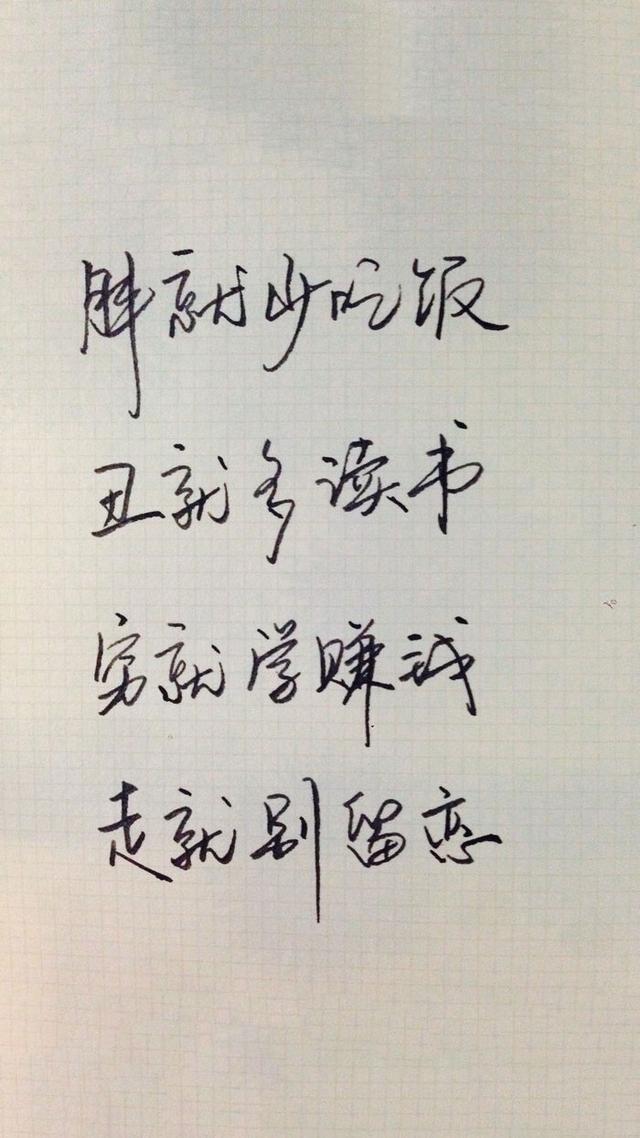 胖就少吃饭
丑就多读书
穷就学赚钱
走就别留恋